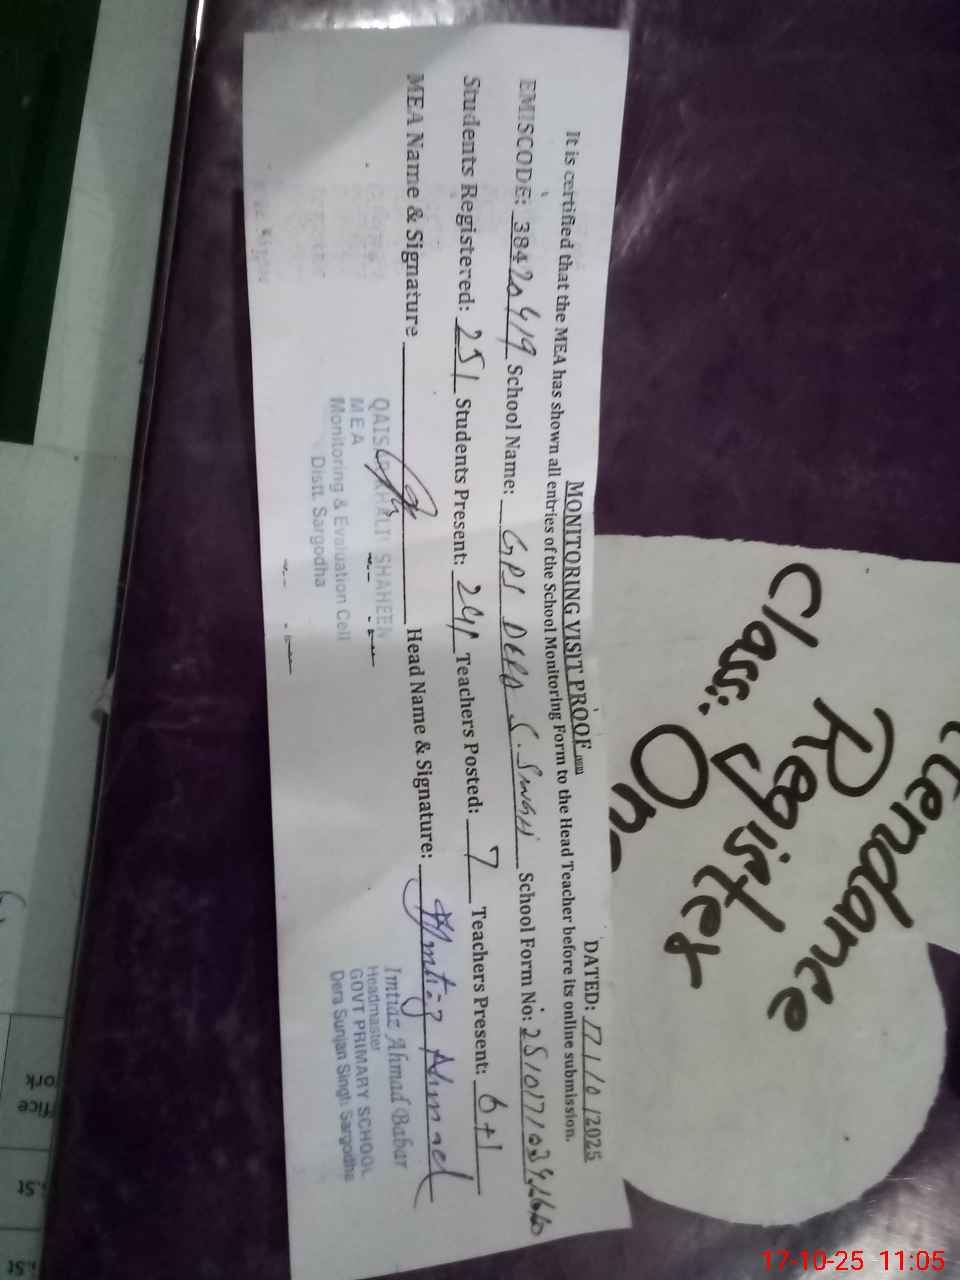 MONITORING VISIT PROOF
DATED: 17/10/2025
It is certified that the MEA has shown all entries of the School Monitoring Form to the Head Teacher before its online submission.
EMISCODE: 38420419 School Name: GPS DERA S. SINGH School Form No:
Students Registered: 251 Students Present: Teachers Posted: 7 Teachers Present: 6+1
MEA Name & Signature Head Name & Signature: Imtiaz Ahmad
SHAHEEN
MEA
Monitoring & Evaluation Cell
Distt. Sargodha
Imtiaz Ahmad Babar
Headmaster
GOVT PRIMARY SCHOOL
Dera Sunjan Singh Sargodha
Register
Class:
17-10-25 11:05